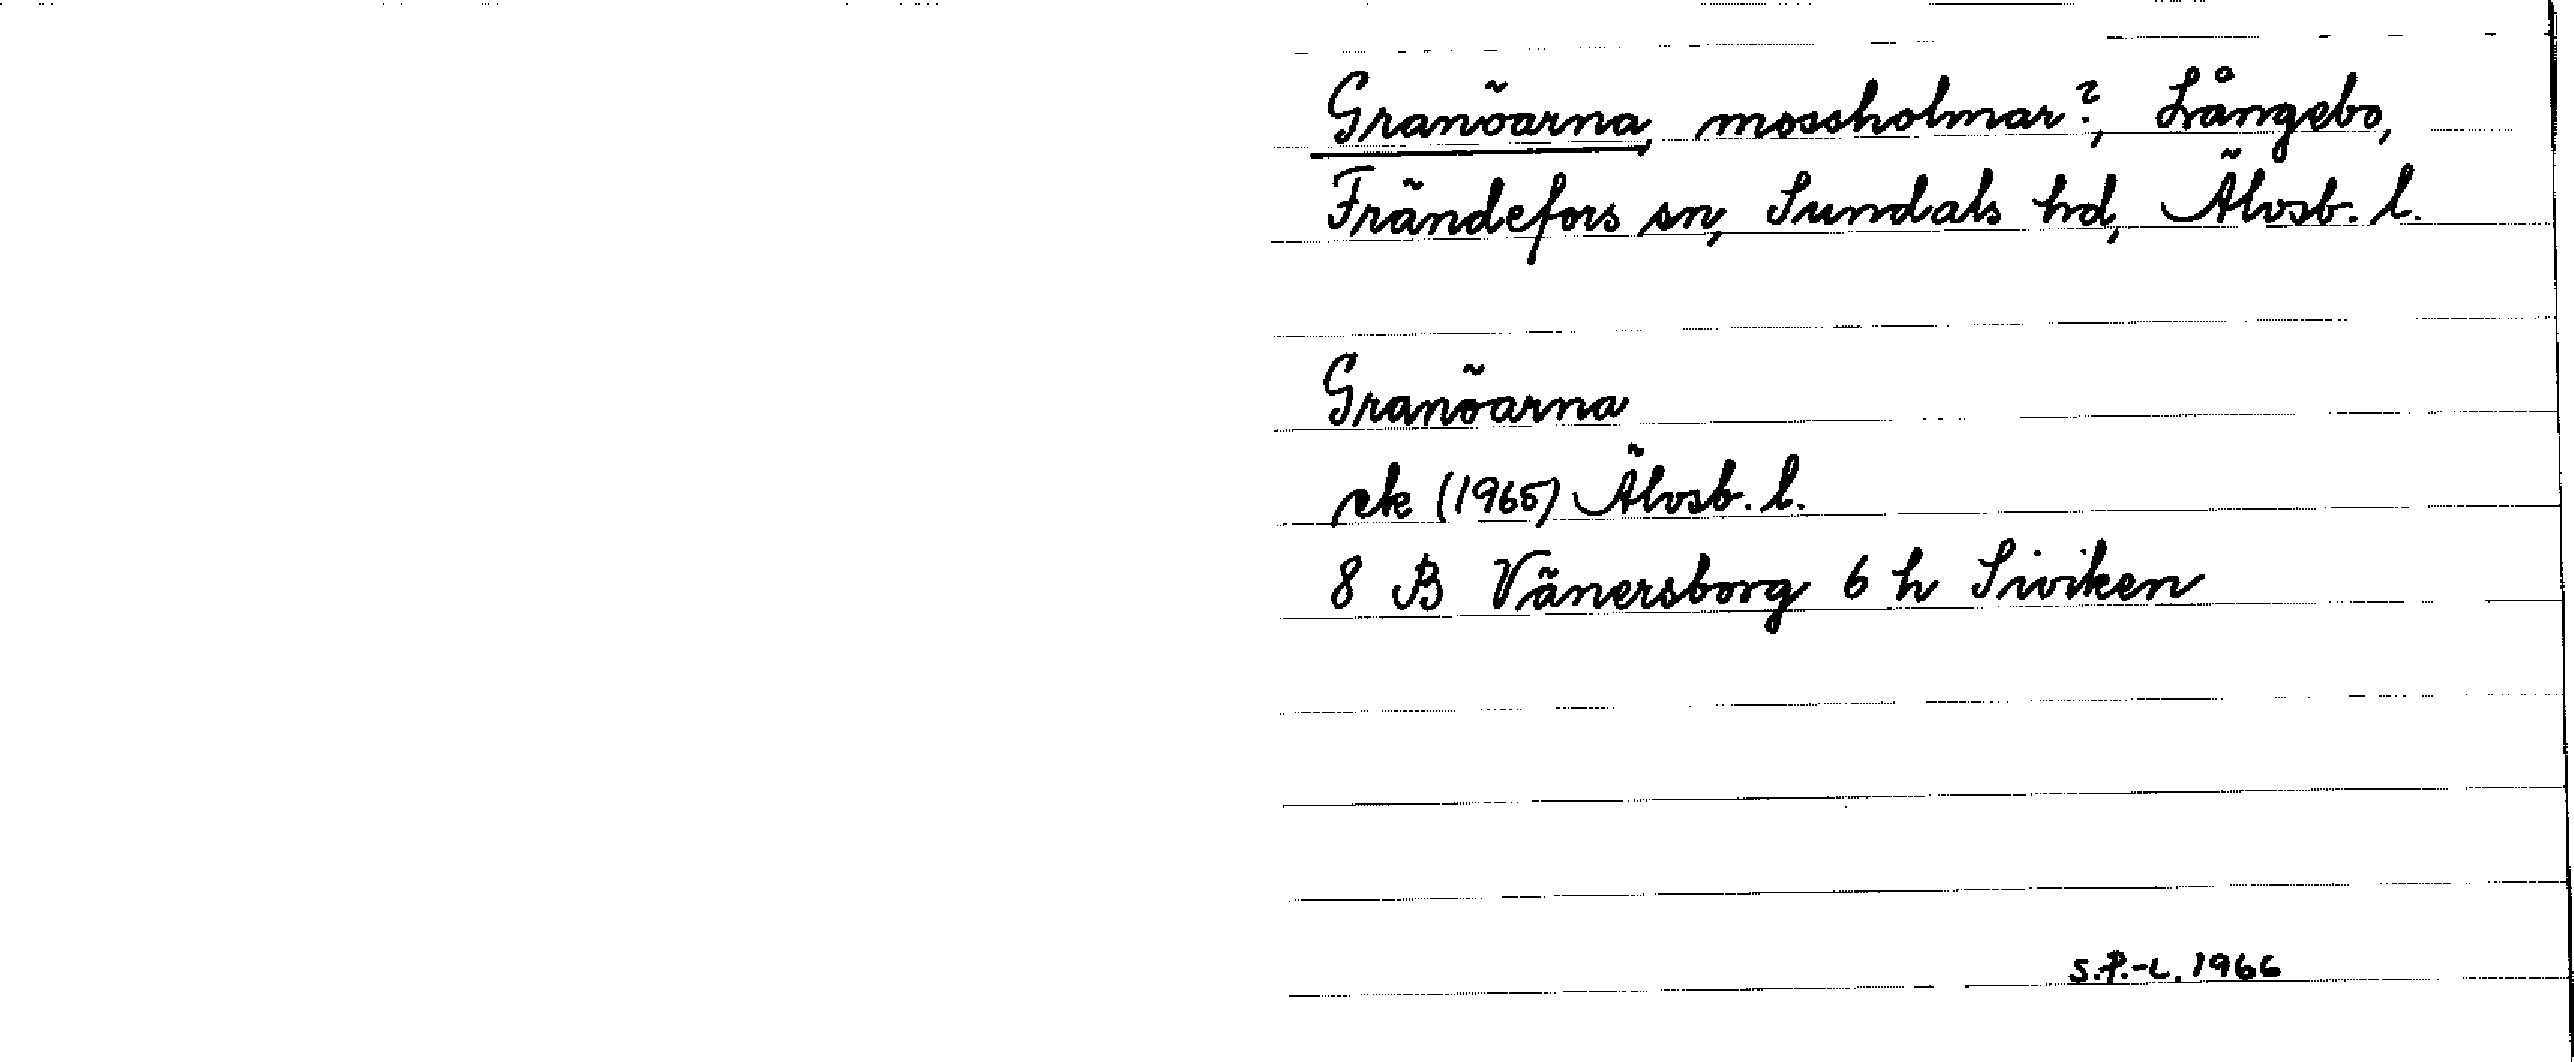 Granöarna, mossholmar?, Långebo,
Frändefors sn, Sundals hd, Älvsb. l.
Granöarna
rk (1965) Älvsb. l.
8 B Vänersborg 6 h Siviken
S.P.-L. 1966